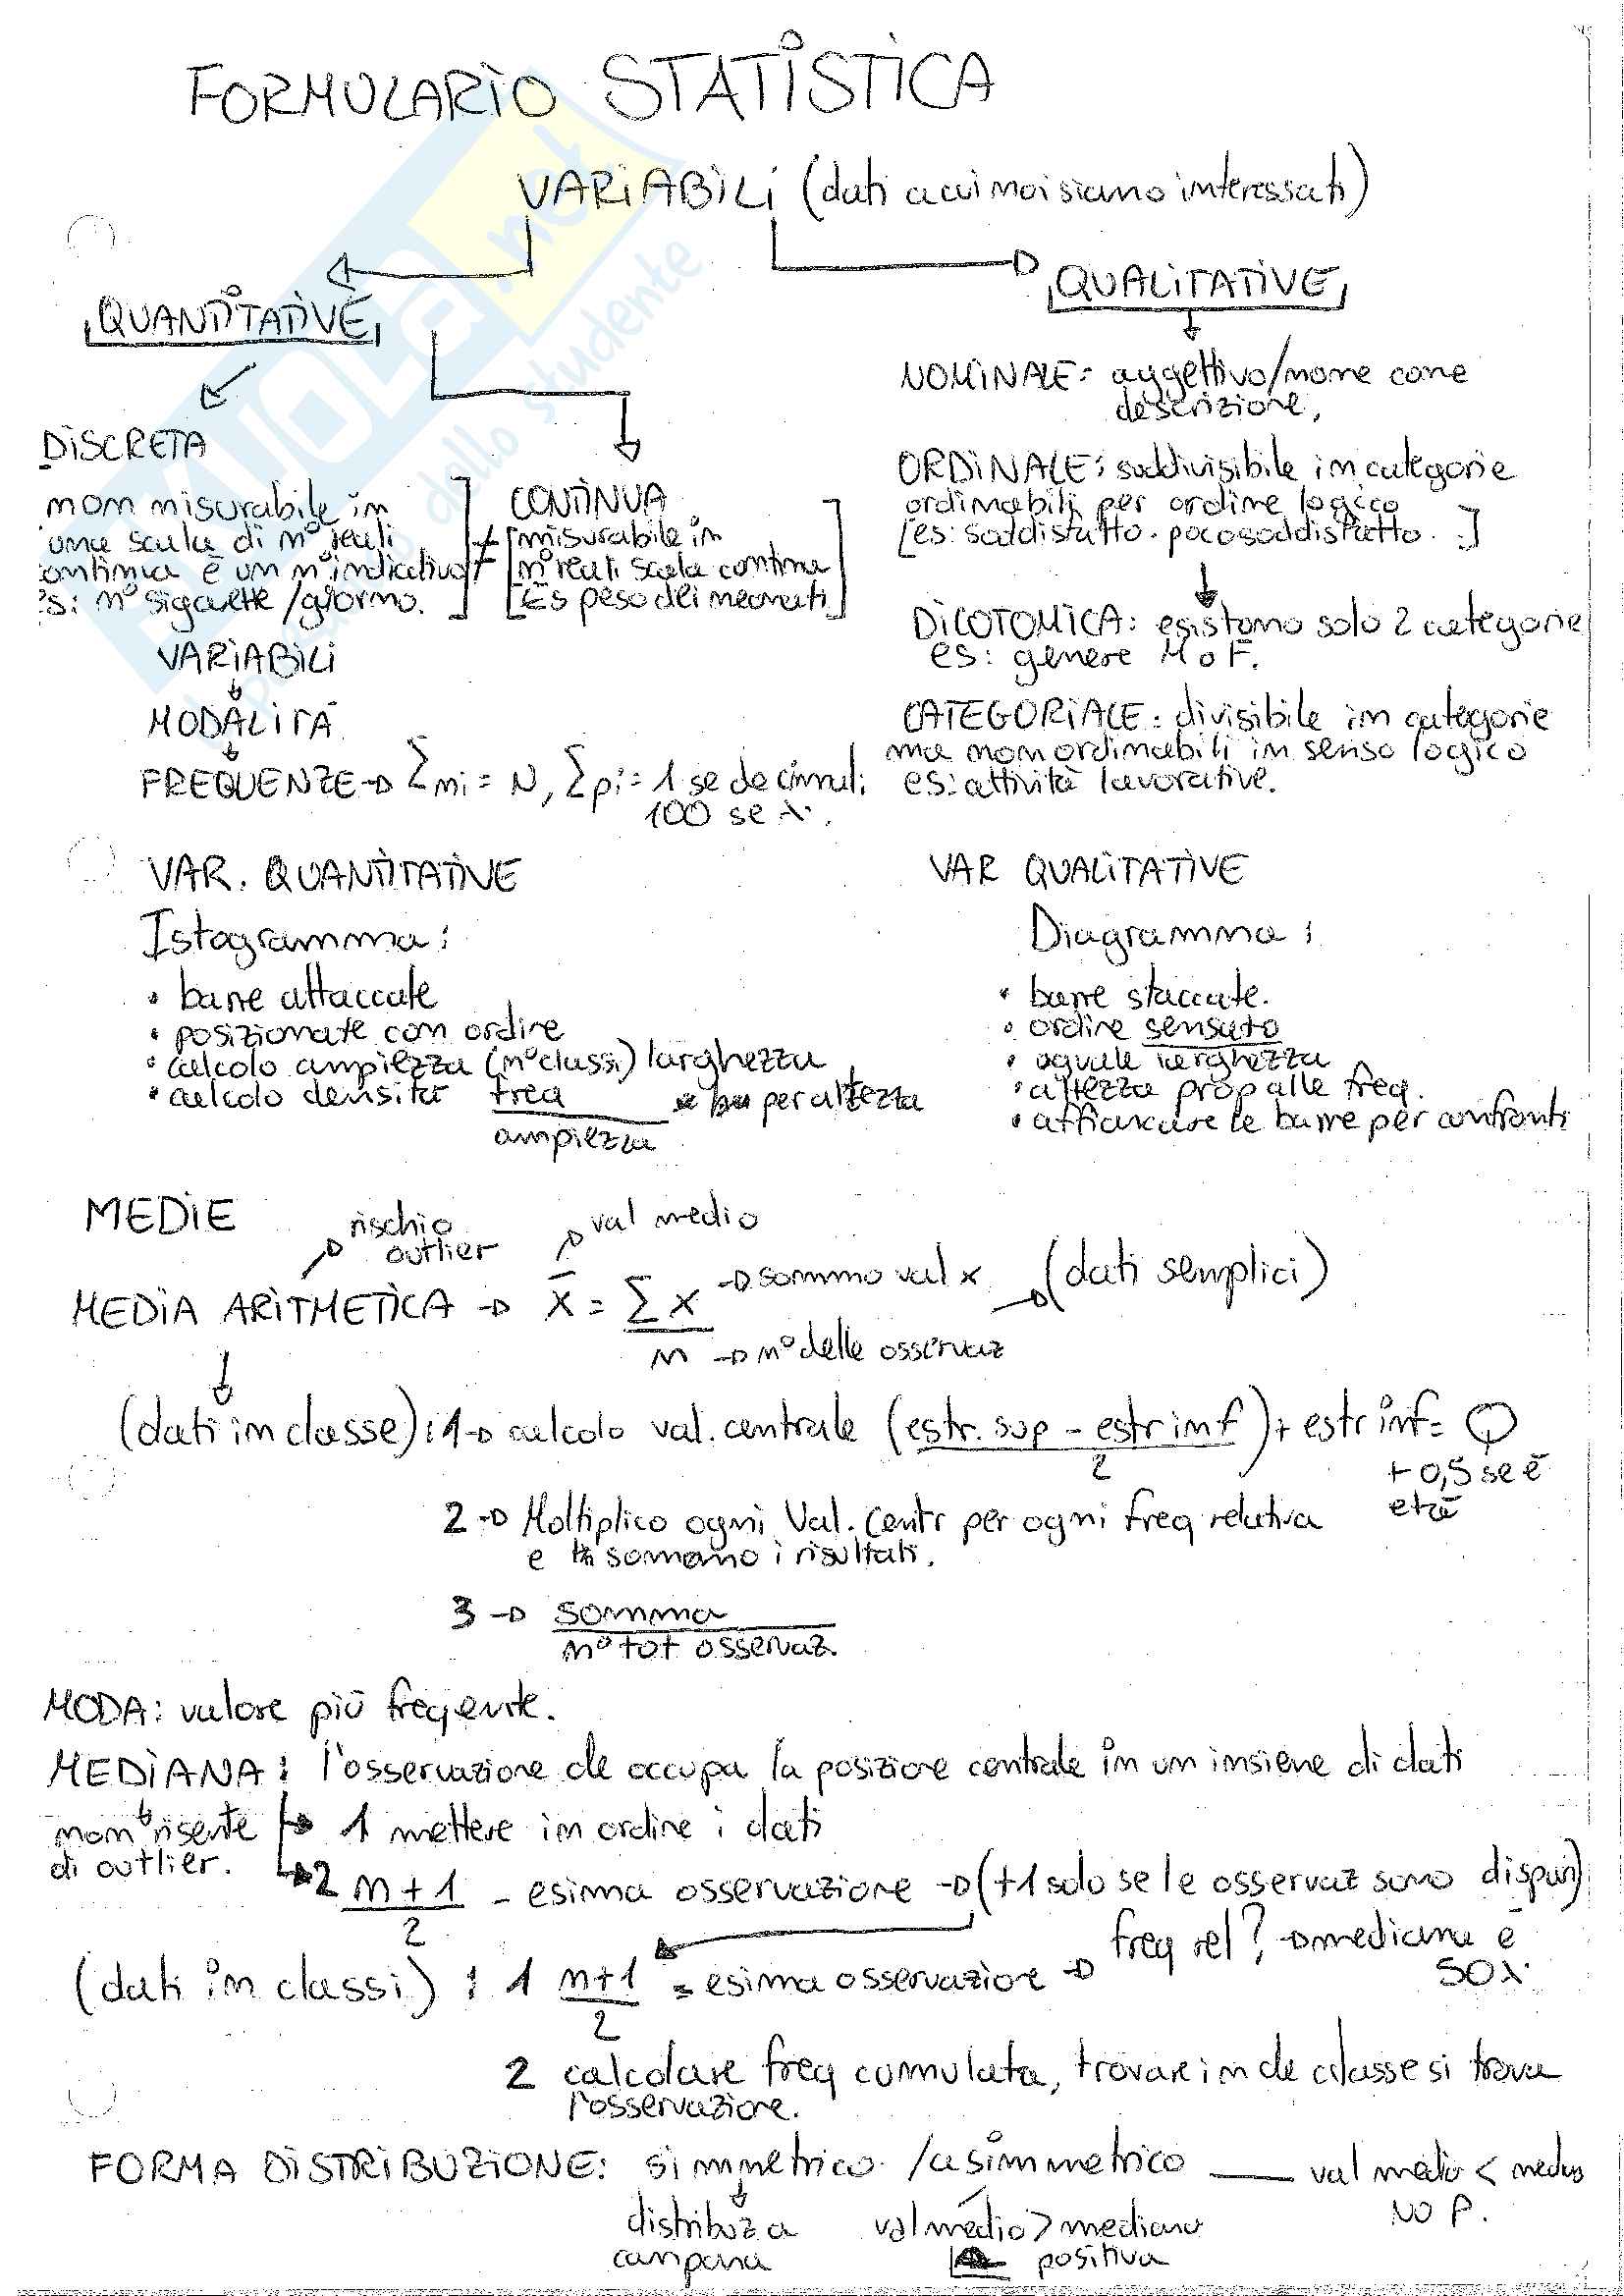 FORMULARIO STATISTICA
VARIABILI (dati a cui noi siamo interessati)
QUANTITATIVE
QUALITATIVE
NOMINALE: aggettivo/nome come
descrizione,
ORDINALE: suddivisibile in categorie
ordinabili per ordine logico
[es: soddisfatto. poco soddisfatto. ]
DICOTOMICA: esistono solo 2 categorie
es: genere M o F.
CATEGORIALE: divisibile in categorie
ma non ordinabili in senso logico
es: attività lavorative.
DISCRETA
non misurabile in
una scala di n° reali
continua è un n° indicativo
es: n° sigarette/giorno.
≠
CONTINUA
misurabile in
n° reali scala continua
[Es peso dei neonati]
VARIABILI
MODALITÀ
FREQUENZE → Σni = N, Σpi = 1 se decimali
100 se %.
VAR. QUANTITATIVE
Istogramma:
• barre attaccate
• posizionate con ordine
• calcolo ampiezza (n° classi) larghezza
• calcolo densità freq per altezza
ampiezza
VAR QUALITATIVE
Diagramma:
• barre staccate.
• ordine sensato
• uguale larghezza
• altezza prop alle freq.
• affiancare le barre per confronti
MEDIE
rischio
outlier
val medio
MEDIA ARITMETICA → x̄ = Σx → sommo val x → (dati semplici)
n → n° delle osservaz
(dati in classe): 1 → calcolo val. centrale (estr. sup - estr inf) + estr inf =
2
+ 0,5 se è
età
2 → Moltiplico ogni Val. Centr per ogni freq relativa
e si sommano i risultati.
3 → somma
n° tot osservaz.
MODA: valore più freqente.
MEDIANA: l'osservazione che occupa la posizione centrale in un insieme di dati
non risente
di outlier.
1 mettere in ordine i dati
2 n+1 - esima osservazione → (+1 solo se le osservaz sono dispari)
2
(dati in classi): 1 n+1 = esima osservazione → freq rel? → mediana è
2
50%
2 calcolare freq cumulata, trovare in che classe si trova
l'osservazione.
FORMA DISTRIBUZIONE: simmetrico / asimmetrico — val medio <
NO P.
distribuz a
campana
val medio > mediana
positiva
dallo studente